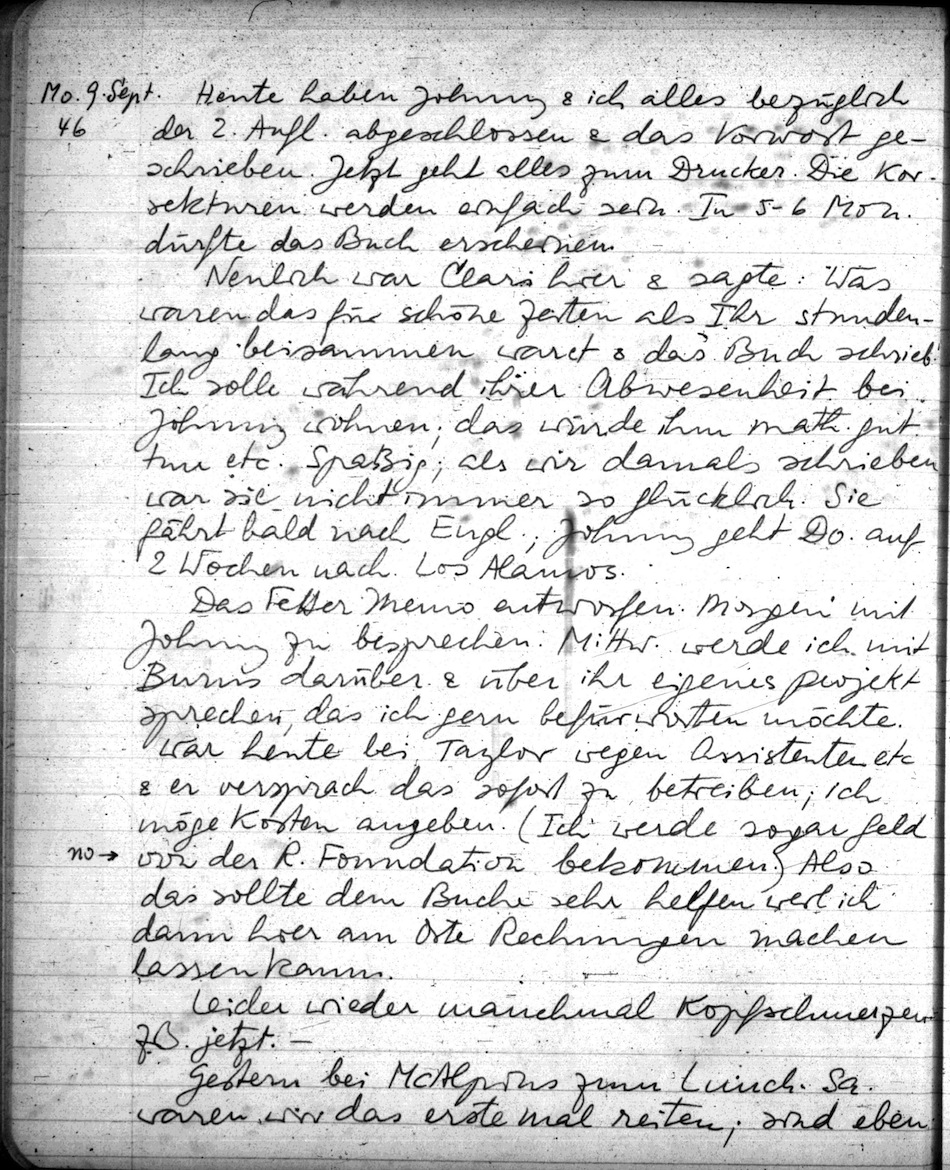 Mo. 9. Sept. Heute haben Johnny & ich alles bezüglich
46 der 2. Aufl. abgeschlossen & das Vorwort ge-
schrieben. Jetzt geht alles zum Drucker. Die Kor-
rekturen werden einfach sein. In 5-6 Mon.
dürfte das Buch erscheinen.
Neulich war Clari hier & sagte: Was
waren das für schöne Zeiten als Ihr stunden-
lang beisammen waret & das Buch schriebt.
Ich solle während ihrer Abwesenheit bei
Johnny wohnen; das würde ihm math. gut
tun etc. Spaßig; als wir damals schrieben
war sie nicht immer so glücklich. Sie
fährt bald nach Engl.; Johnny geht Do. auf
2 Wochen nach Los Alamos.
Das Memo entworfen. Morgen mit
Johnny zu besprechen. Mittw. werde ich mit
Burns darüber & über ihr eigenes Projekt
sprechen, das ich gern befürworten möchte.
War heute bei Taylor wegen Assistenten etc
& er versprach das sofort zu betreiben; ich
möge Kosten angeben. (Ich werde sogar Geld
no → von der R. Foundation bekommen.) Also
das sollte dem Buche sehr helfen weil ich
dann hier am Orte Rechnungen machen
lassen kann.
Leider wieder manchmal Kopfschmerzen
zB. jetzt. —
Gestern bei McAlpins zum Lunch. Sa.
waren wir das erste mal reiten; sind eben